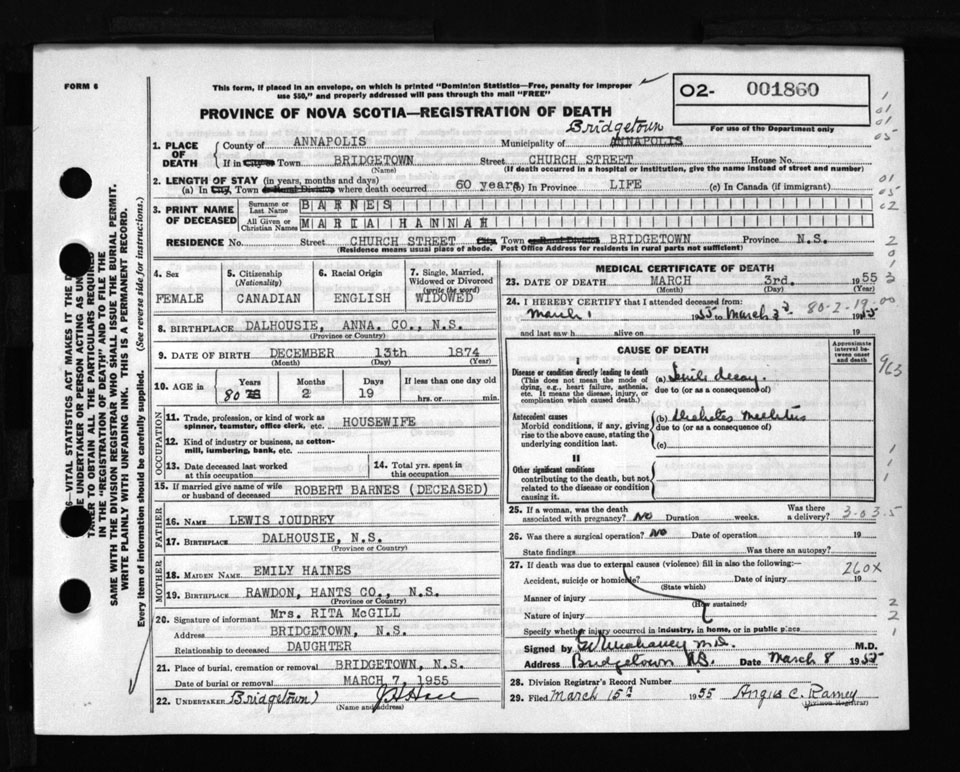 FORM 6
This form, if placed in an envelope, on which is printed "Dominion Statistics—Free, penalty for improper
use $50," and properly addressed will pass through the mail "FREE"
O2- 001860
For use of the Department only
PROVINCE OF NOVA SCOTIA—REGISTRATION OF DEATH
Bridgetown
1. PLACE OF DEATH { County of ANNAPOLIS Municipality of ANNAPOLIS
If in City or Town BRIDGETOWN Street CHURCH STREET House No.
(Name) (If death occurred in a hospital or institution, give the name instead of street and number)
2. LENGTH OF STAY (in years, months and days)
(a) In City, Town or Rural Division where death occurred 60 years (b) In Province LIFE (c) In Canada (if immigrant)
3. PRINT NAME OF DECEASED { Surname or Last Name BARNES
All Given or Christian Names MARIA HANNAH
RESIDENCE No. Street CHURCH STREET City, Town or Rural Division BRIDGETOWN Province N.S.
(Residence means usual place of abode. Post Office Address for residents in rural parts not sufficient)
4. Sex FEMALE
5. Citizenship (Nationality) CANADIAN
6. Racial Origin ENGLISH
7. Single, Married, Widowed or Divorced (write the word) WIDOWED
8. BIRTHPLACE DALHOUSIE, ANNA. CO., N.S.
(Province or Country)
9. DATE OF BIRTH DECEMBER 13th 1874
(Month) (Day) (Year)
10. AGE in { Years Months Days If less than one day old
80 2 19 hrs. or min.
OCCUPATION
11. Trade, profession, or kind of work as spinner, teamster, office clerk, etc. HOUSEWIFE
12. Kind of industry or business, as cotton-mill, lumbering, bank, etc.
13. Date deceased last worked at this occupation
14. Total yrs. spent in this occupation
15. If married give name of wife or husband of deceased ROBERT BARNES (DECEASED)
FATHER
16. NAME LEWIS JOUDREY
17. BIRTHPLACE DALHOUSIE, N.S.
(Province or Country)
MOTHER
18. MAIDEN NAME EMILY HAINES
19. BIRTHPLACE RAWDON, HANTS CO., N.S.
(Province or Country)
20. Signature of informant Mrs. RITA McGILL
Address BRIDGETOWN, N.S.
Relationship to deceased DAUGHTER
21. Place of burial, cremation or removal BRIDGETOWN, N.S.
Date of burial or removal MARCH 7, 1955
22. UNDERTAKER Bridgetown
(Name and address)
MEDICAL CERTIFICATE OF DEATH
23. DATE OF DEATH MARCH 3rd. 1955
(Month) (Day) (Year)
24. I HEREBY CERTIFY that I attended deceased from:
March 1 1955 to March 3 1955 80-2-19-00
and last saw h alive on 19
CAUSE OF DEATH
Approximate interval between onset and death
I
Disease or condition directly leading to death
(This does not mean the mode of dying, e.g., heart failure, asthenia, etc. It means the disease, injury, or complication which caused death.)
(a) Senile decay
due to (or as a consequence of)
Antecedent causes
Morbid conditions, if any, giving rise to the above cause, stating the underlying condition last.
(b) Diabetes Mellitus
due to (or as a consequence of)
(c)
II
Other significant conditions contributing to the death, but not related to the disease or condition causing it.
25. If a woman, was the death associated with pregnancy? No Duration weeks. Was there a delivery? 3-03.5
26. Was there a surgical operation? No Date of operation 19
State findings Was there an autopsy?
27. If death was due to external causes (violence) fill in also the following:— 260X
Accident, suicide or homicide? Date of injury 19
(State which)
Manner of injury
(How sustained)
Nature of injury
Specify whether injury occurred in industry, in home, or in public place
Signed by M.D. M.D.
Address Bridgetown N.S. Date March 8 1955
28. Division Registrar's Record Number
29. Filed March 15th 1955 Angus C. Ramey
(Division Registrar)
SAME WITH THE DIVISION REGISTRAR WHO SHALL ISSUE THE BURIAL PERMIT.
WRITE PLAINLY WITH UNFADING INK. THIS IS A PERMANENT RECORD.
Every item of information should be carefully supplied. (See reverse side for instructions.)